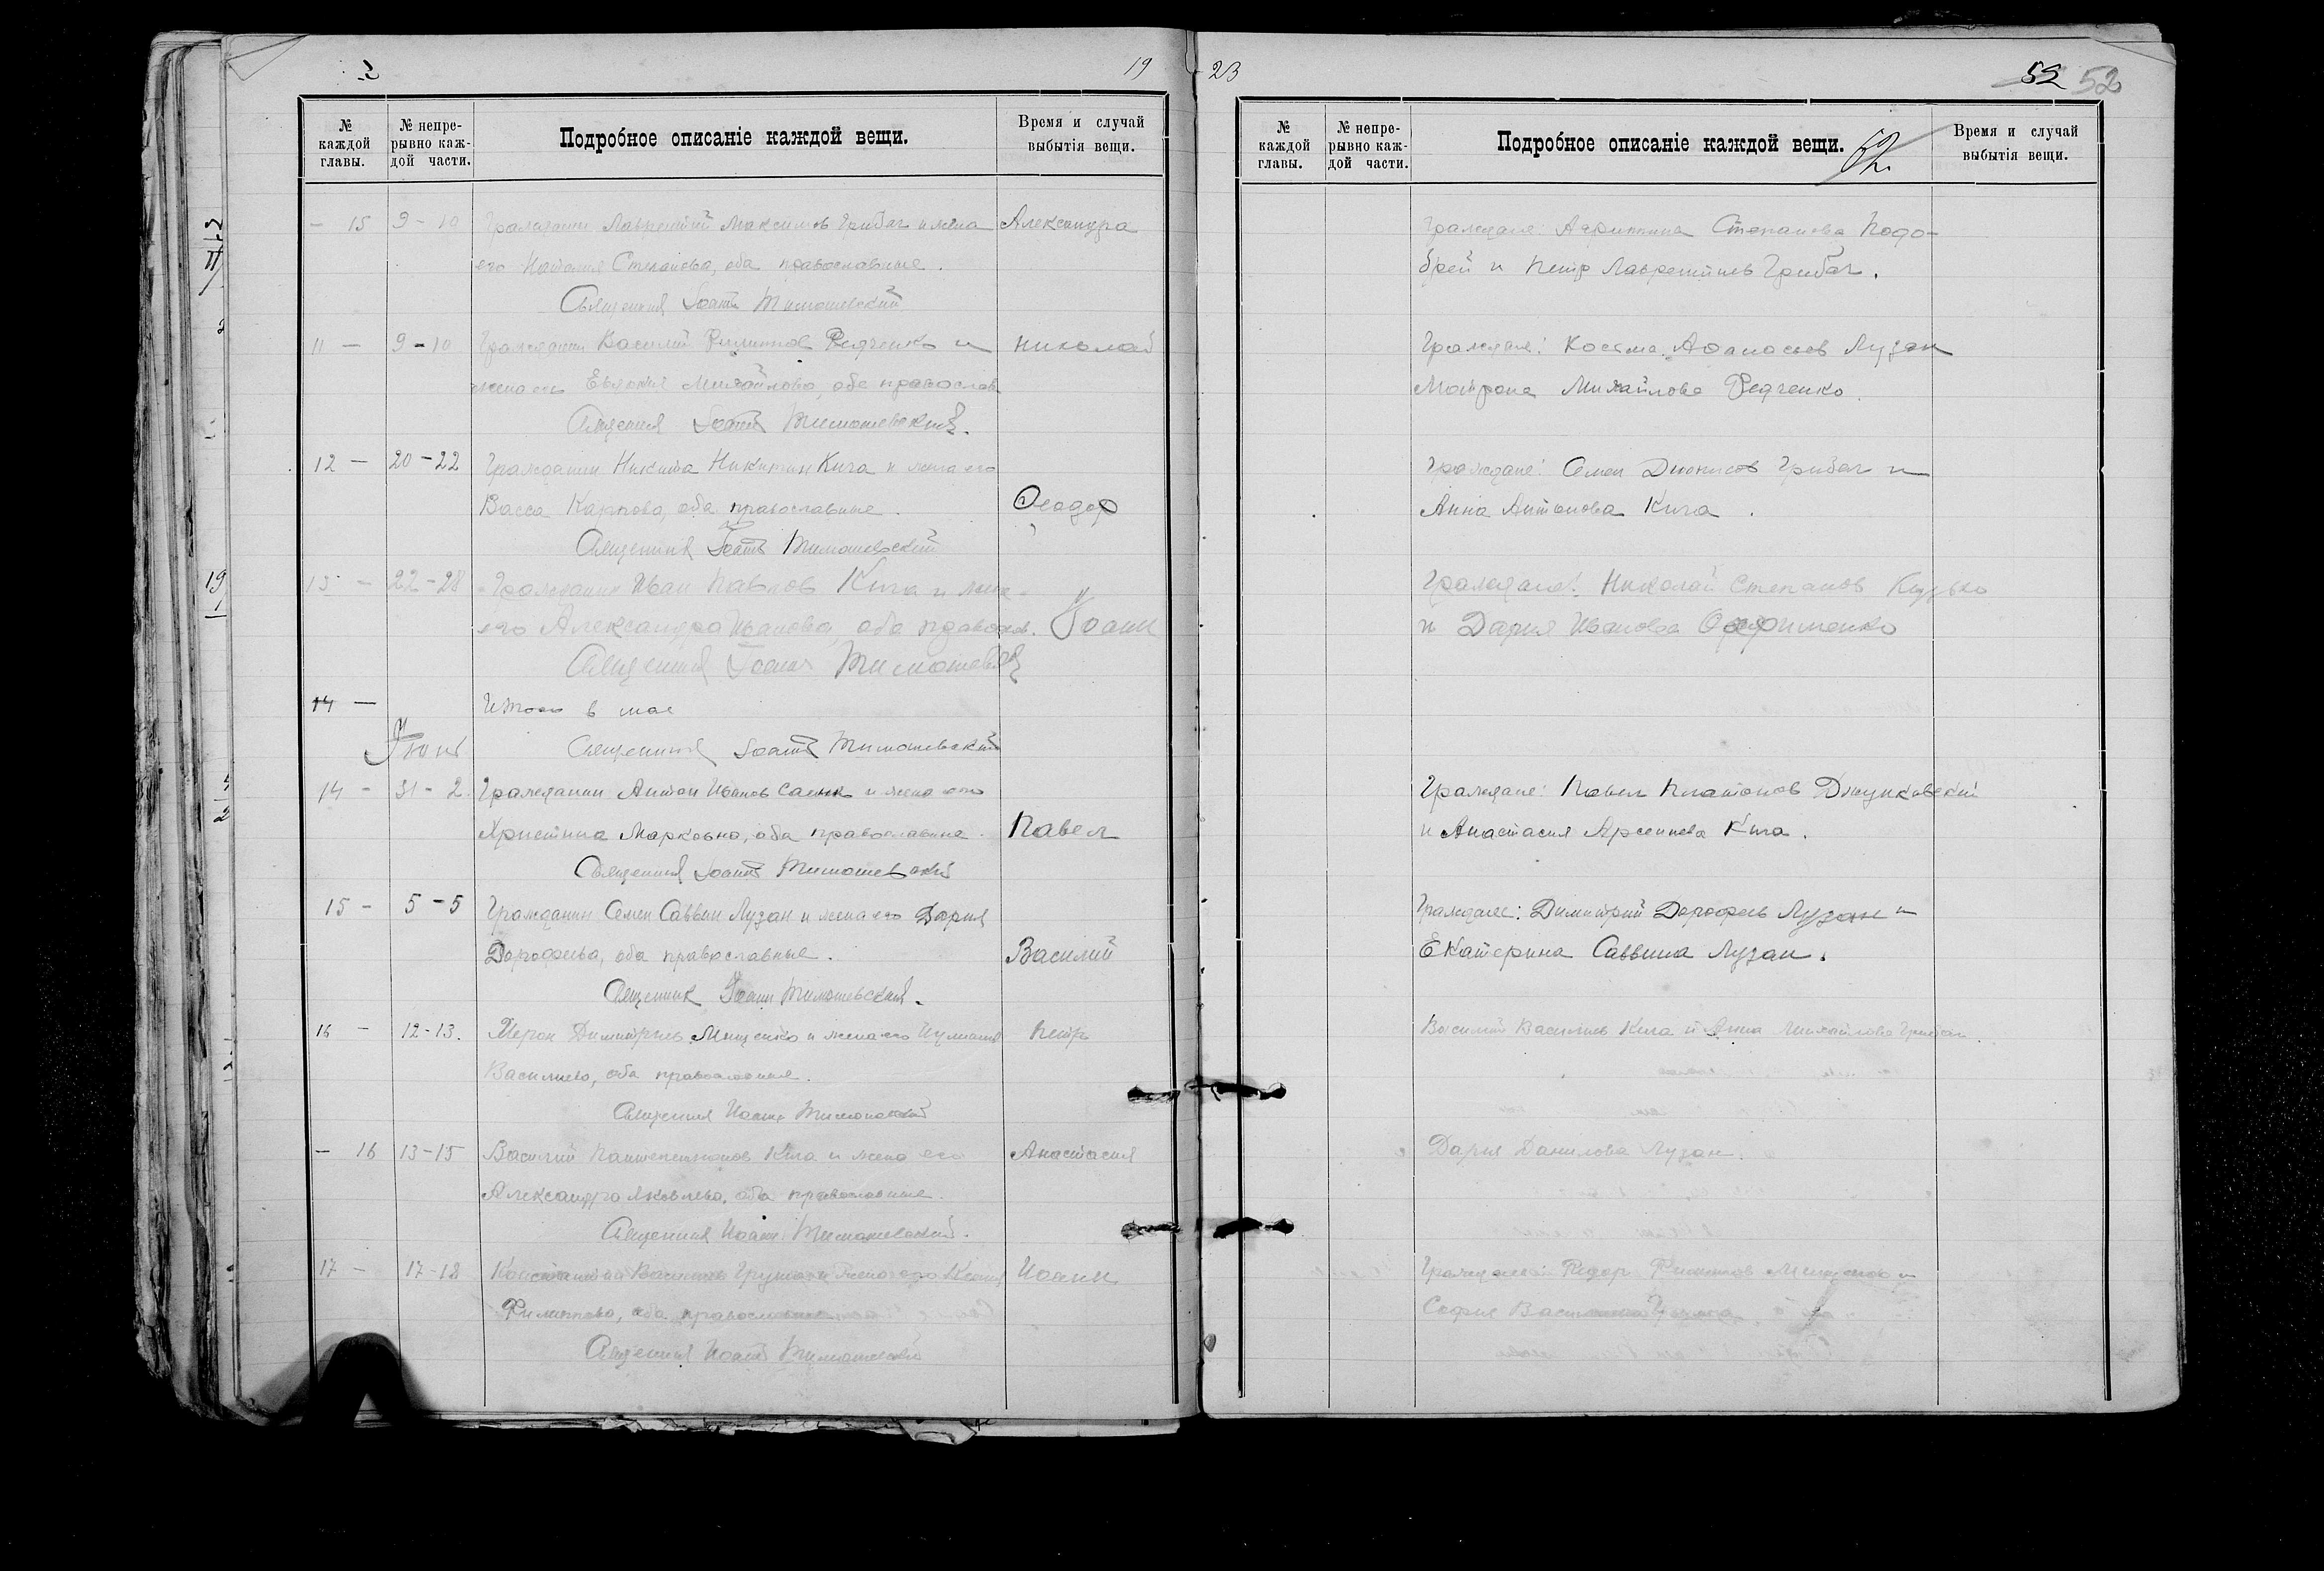 19
№ каждой главы.
№ непрерывно каждой части.
Подробное описаніе каждой вещи.
Время и случай выбытія вещи.
- 15 9-10 Гражданин Лаврентий Максимов Грибач и жена Александра
его Наталия Степанова, оба православные.
Священник Іоанн Тимошевский
11 - 9-10 Гражданин Василий Филиппов Редченко и Николай
жена его Евдокия Михайлова, оба православ
Священник Іоанн Тимошевский.
12 - 20-22 Гражданин Никита Никитин Кича и жена его
Васса Карпова, оба православные. Феодор
Священник Іоанн Тимошевский
13 - 22-28 Гражданин Иван Павлов Кича и жена
его Александра Иванова, оба православ. Іоанн
Священник Іоанн Тимошевский
14 - Итого в мае
Июнь Священник Іоанн Тимошевский
14 - 31-2. Гражданин Антон Иванов Саенк и жена его
Христина Марковна, оба православные. Павел
Священник Іоанн Тимошевский
15 - 5-5 Гражданин Семен Саввин Лузан и жена его Дария
Дорофеева, оба православные. Василий
Священник Іоанн Тимошевский.
16 - 12-13. Димитриев Мищенко и жена его Петр
Васильева, оба православные.
Священник Иоанн Тимошевский
- 16 13-15 Василий Пантелеимонов Кича и жена его Анастасия
Александра Яковлева, оба православные.
Священник Иоанн Тимошевский.
17 - 17-18 Константин Васильев и жена его Ксения Иоанн
Филиппова, оба православные
Священник Иоанн Тимошевский
23
52 52
№ каждой главы.
№ непрерывно каждой части.
Подробное описаніе каждой вещи.
52
Время и случай выбытія вещи.
Граждане: Агриппина Степанова Подо-
брей и Петр Лаврентиев Грибач.
Граждане: Косьма Афанасьев Лузан
Матрона Михайлова Редченко.
Граждане: Семен Дионисов Грибач и
Анна Антонова Кича.
Граждане: Николай Степанов Кудько
и Дария Иванова Охрименко
Граждане: Павел Платонов Джунковский
и Анастасия Арсениева Кича.
Граждане: Димитрий Дорофеев Лузан и
Екатерина Саввина Лузан.
Василий Васильев Кича и Анна Михайлова Грибач.
Дария Данилова Лузан.
Граждане: Федор Филиппов Мищенко и
София Васильева